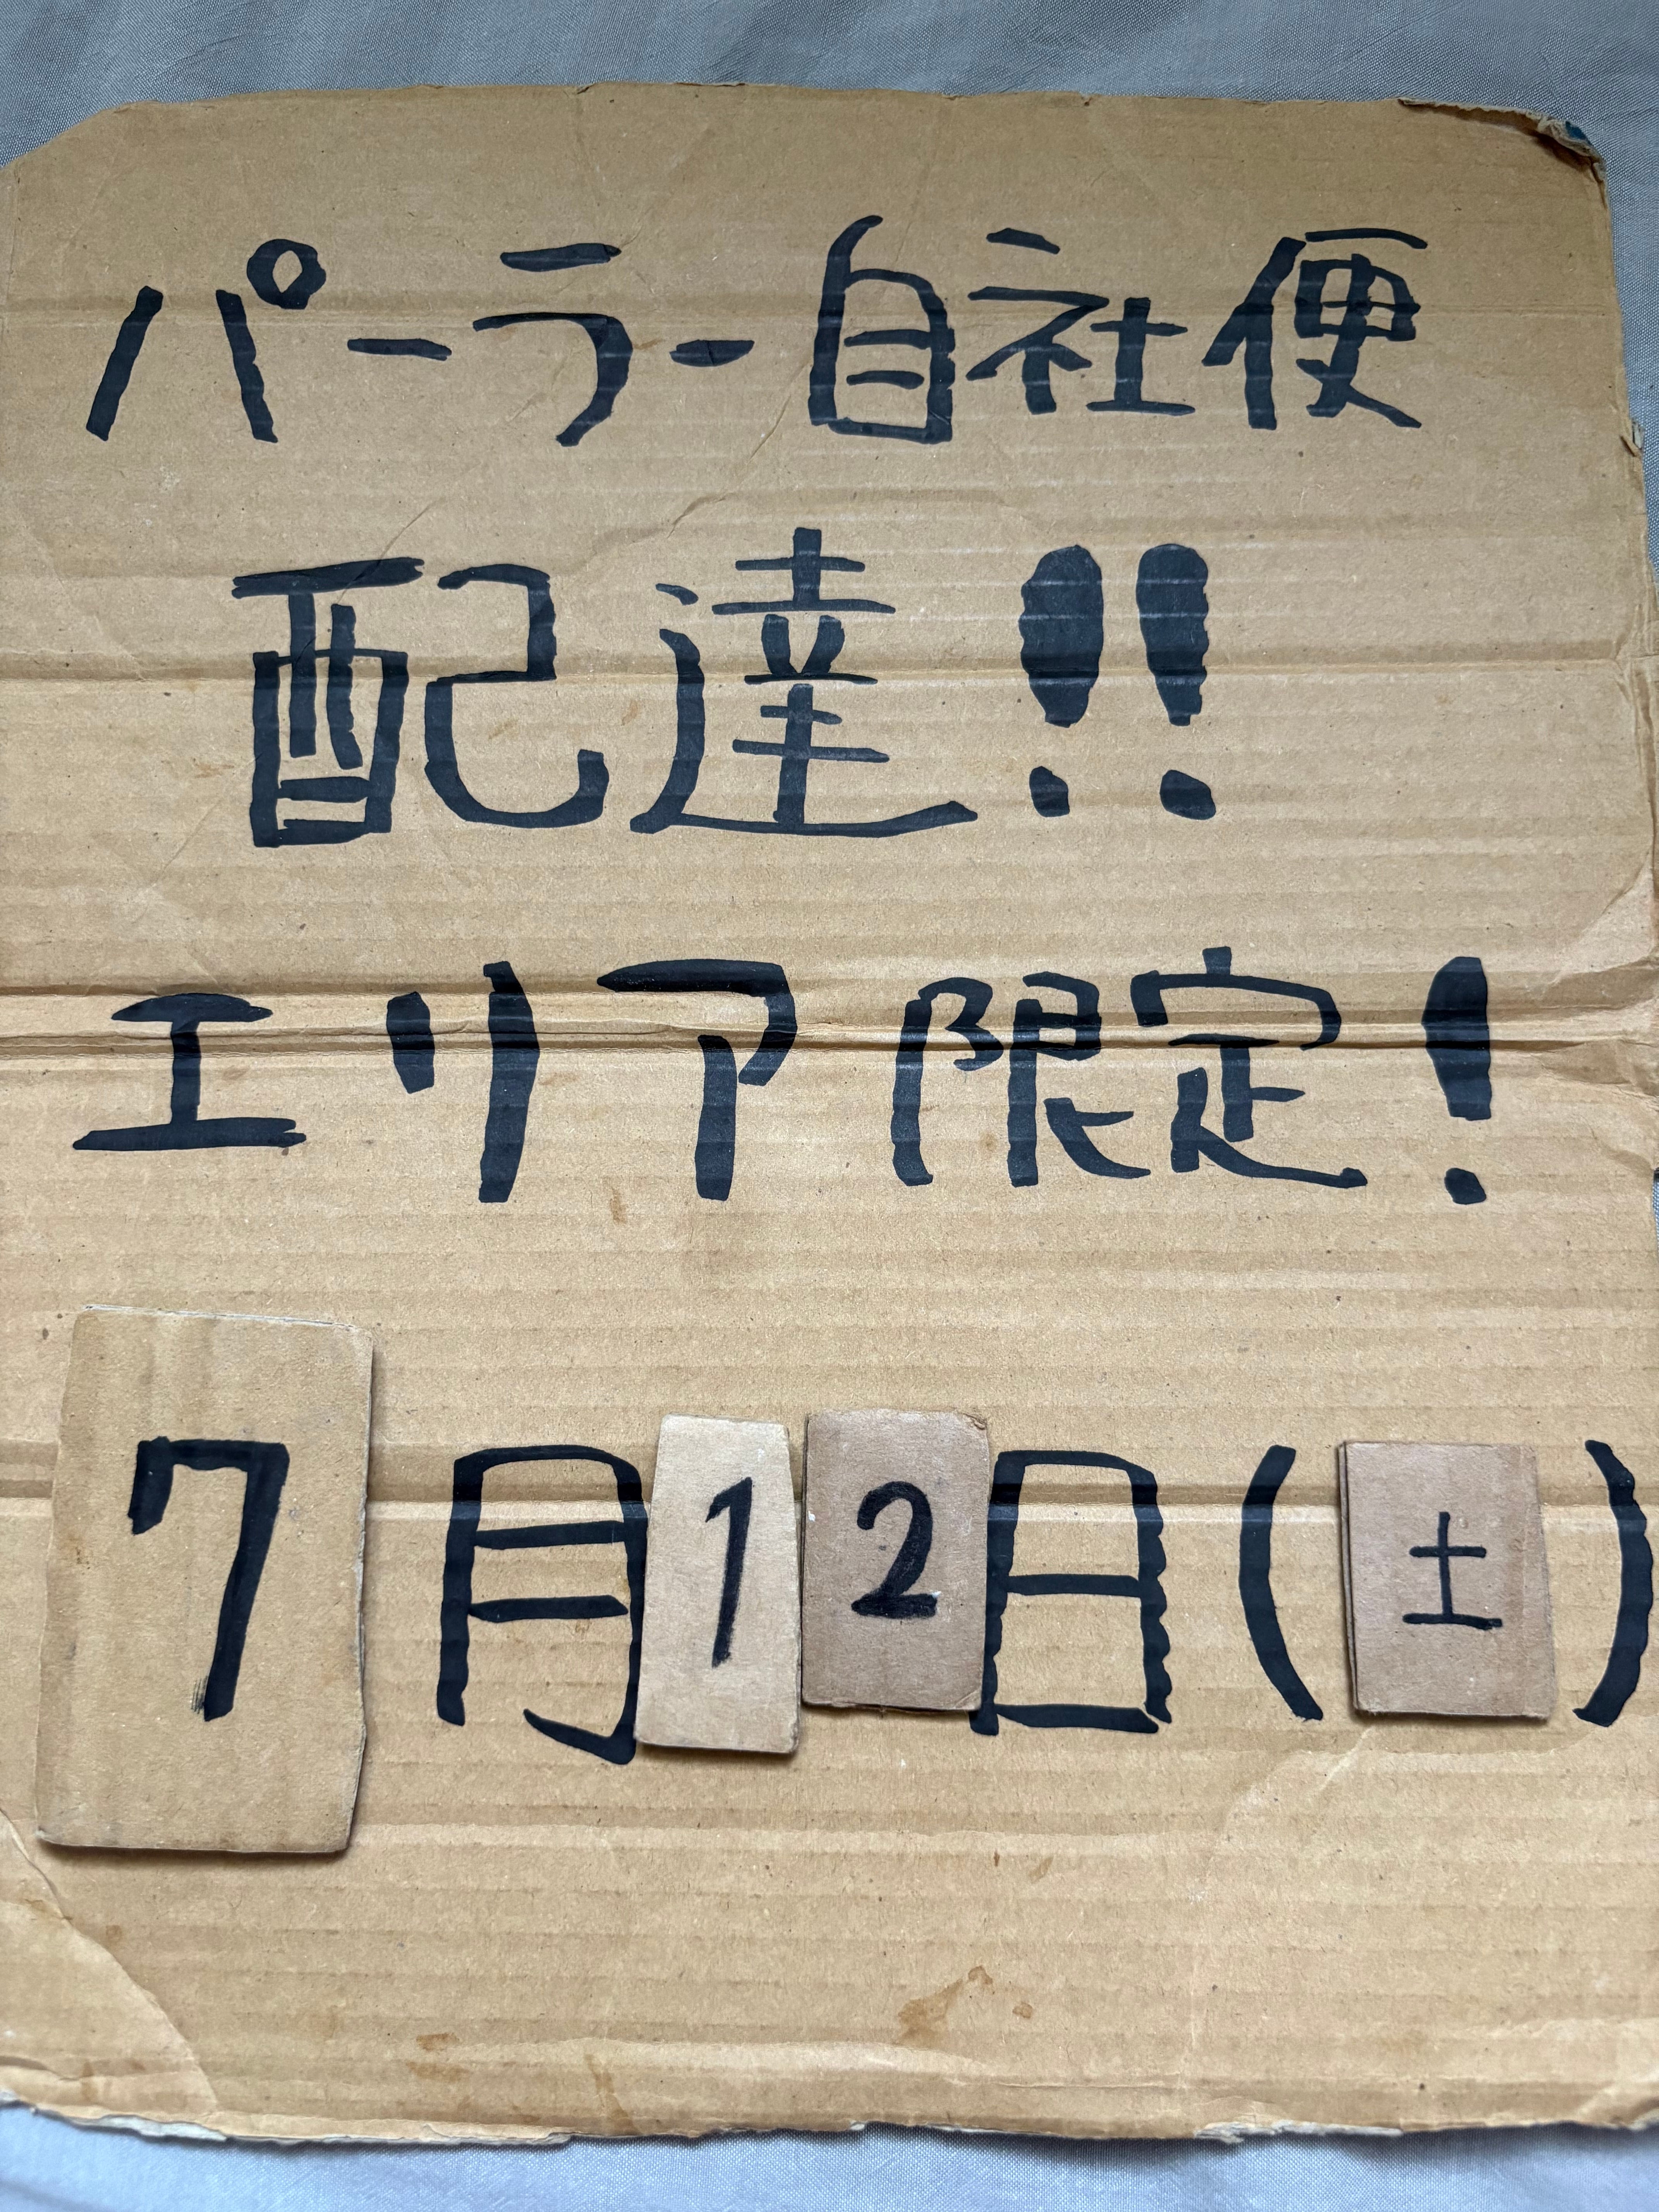 パーラー自社便
配達!!
エリア限定!
7月12日(土)